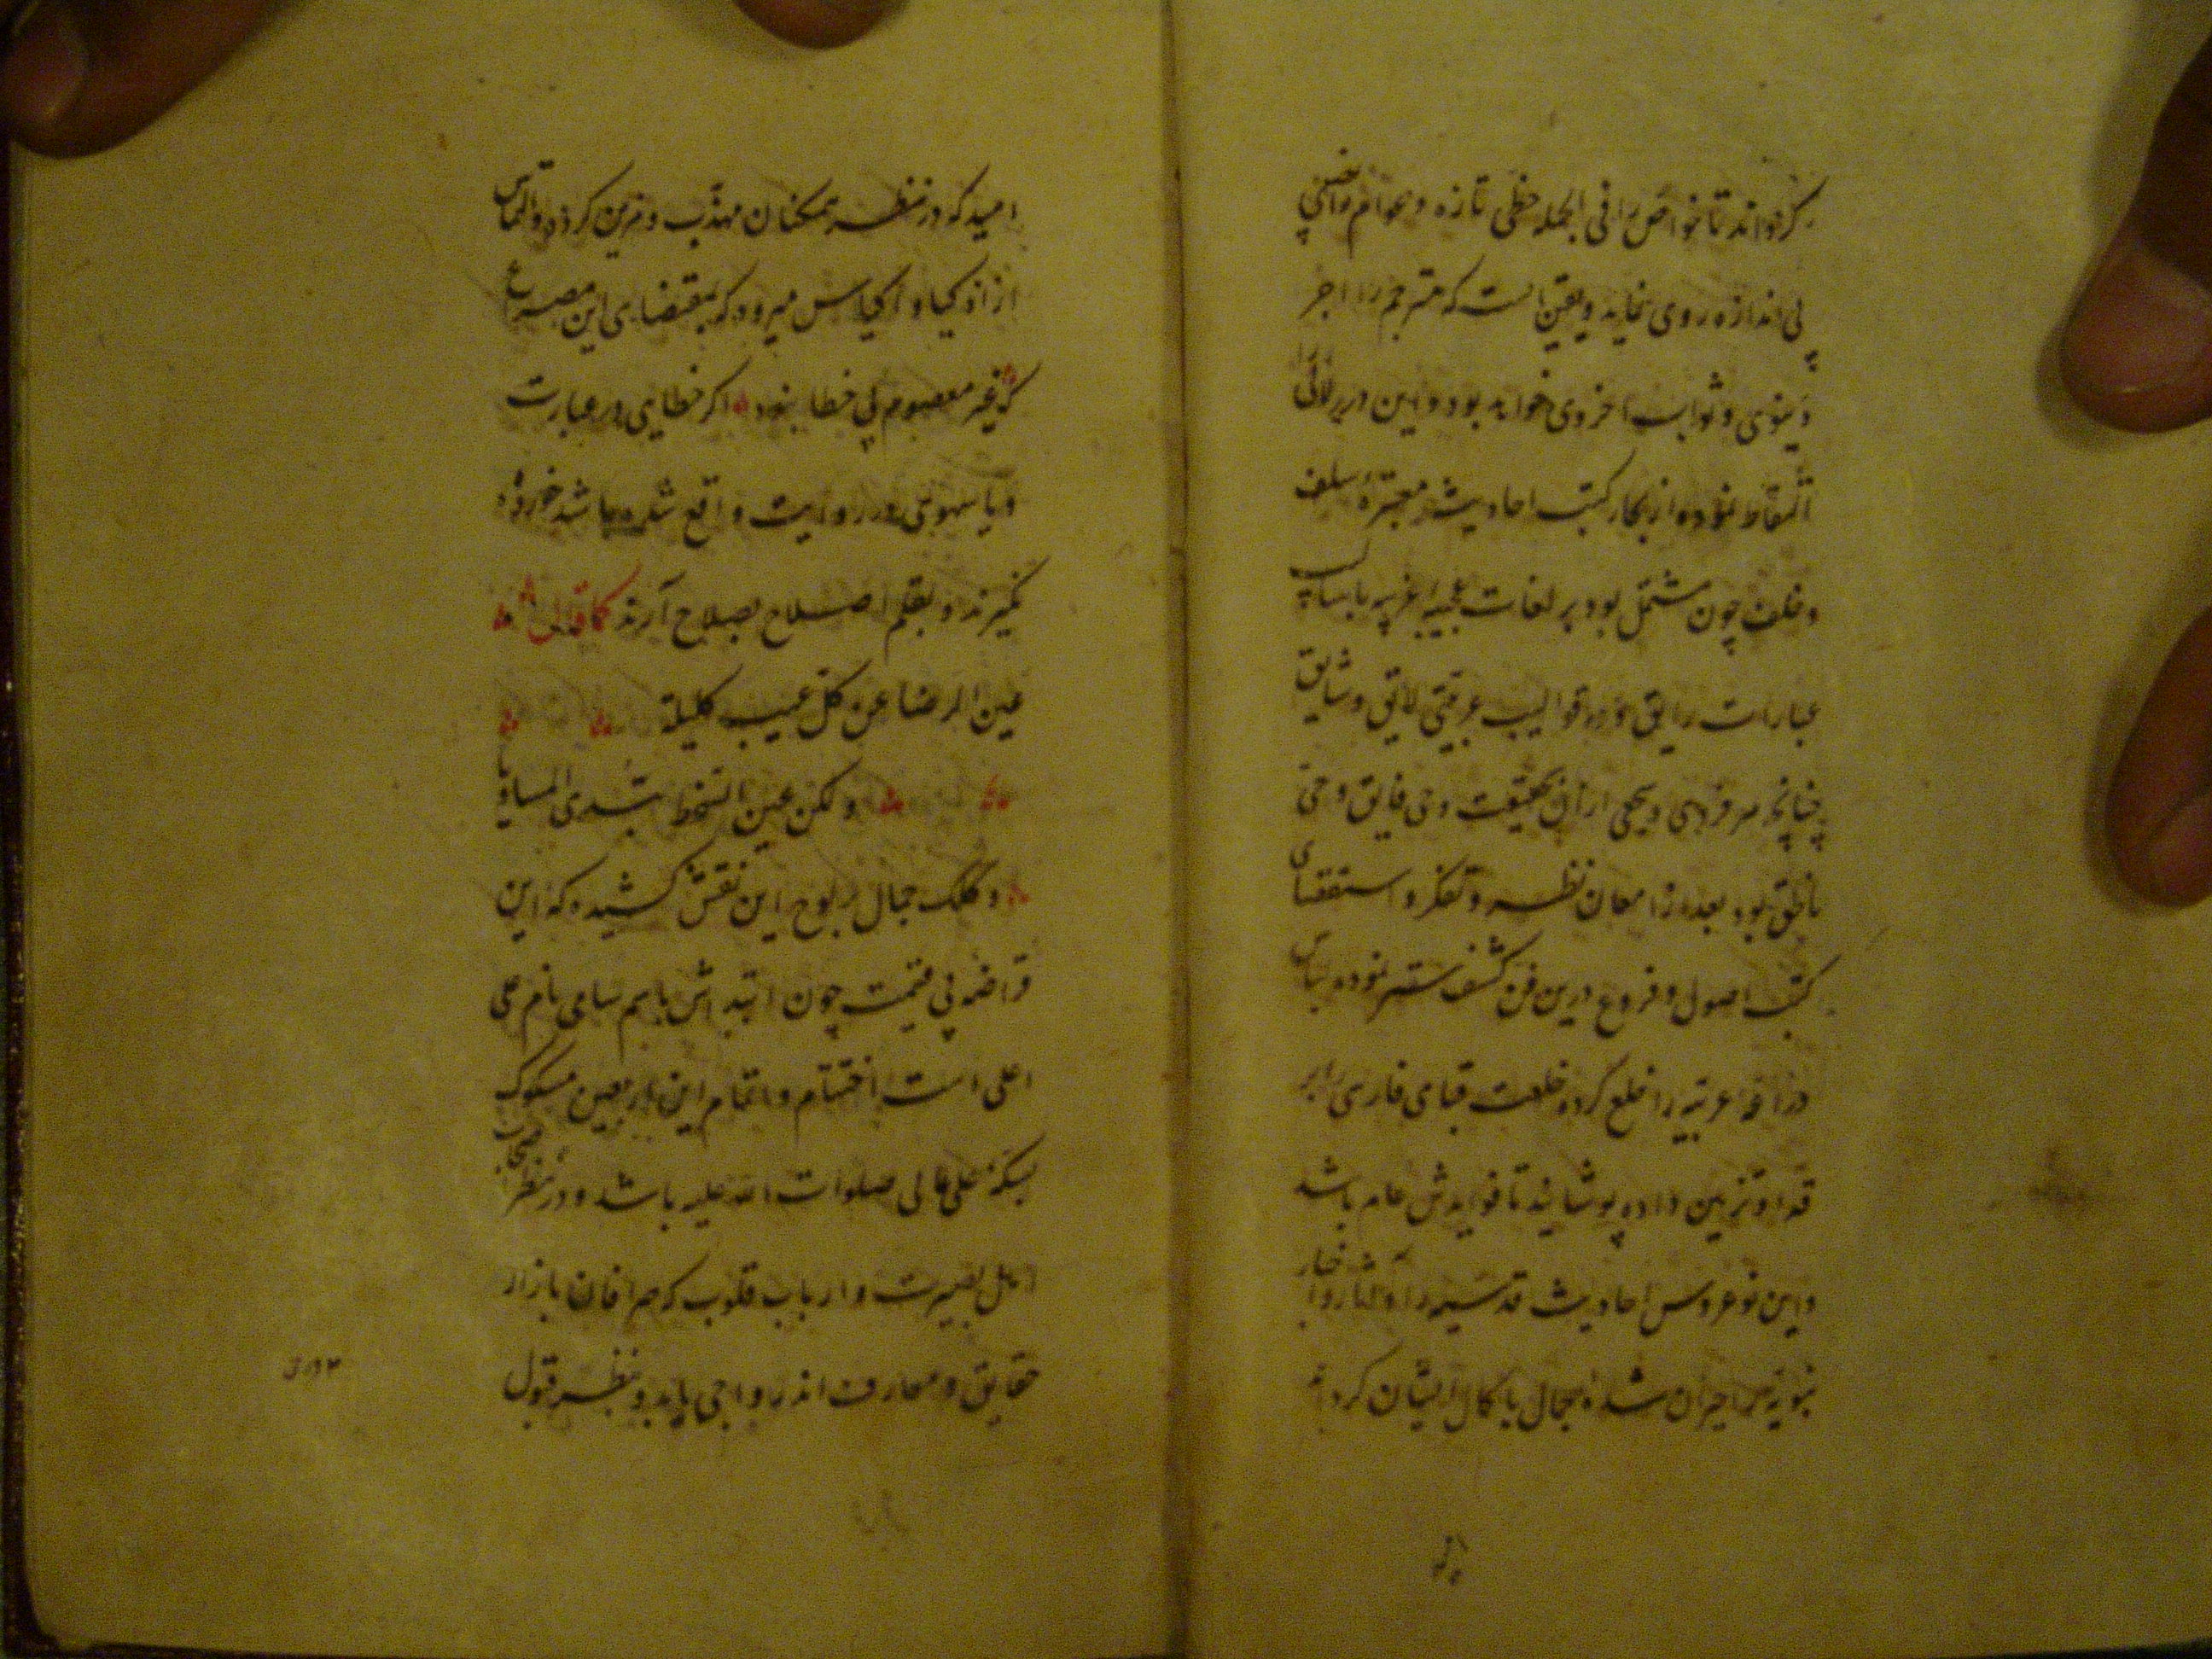 کرداند تا خواص را فی الجمله حظی تازه و عوام را فیضی
بی اندازه روی نماید و یقین است که مترجم را اجر
دنیوی و ثواب اخروی خواهد بود و این درر لآلی را
التقاط نموده از بحار کتب احادیث معتبرهٔ سلف
و خلف چون مشتمل بود بر لغات عجیبه غریبه با سیاب
عبارات رایق و در قوالیب عربیتی لایق و شایق
چنانچه هر فردی ویحی از آن بحقیقت وحی فایق و حی
ناطق بود بعد از امعان نظر و تفکر و استقضای
کتب اصول و فروع درین فن کشف ستر نموده لباس
عربیه را خلع کرده خلعت قبای فارسی برابر
قد او تزیین داده پوشانید تا فوایدش عام باشد
و این نوعروس احادیث قدسیه را و آثار و اخبار
نبویه حیران شده جمال با کمال ایشان کرداند
امید که در نظر ممکنان مهذب و مزین کردد و التماس
از اذکیا و اکیاس میرود که بمقتضای این مصرع
که غیر معصوم بی خطا نبود اکر خطایی در عبارت
و یا سهوی در روایت واقع شده باشد خورده
نگیرند و بقلم اصلاح بصلاح آرند کما قال
عین الرضا عن کل عیب کلیلة
ولکن عین السخط تبدی المساویا
و کلک جمال بر لوح این نقش کشیده که این
قراضه بی قیمت چون ابتداش باسم سامی نام علی
اعلی است اختتام و اتمام این اربعین مسکوک
بسکهٔ علی عالی صلوات الله علیه باشد و در نظر اصحاب
اهل بصیرت و ارباب قلوب که صرافان بازار
حقایق و معارف اند رواجی یابد و بنظر قبول